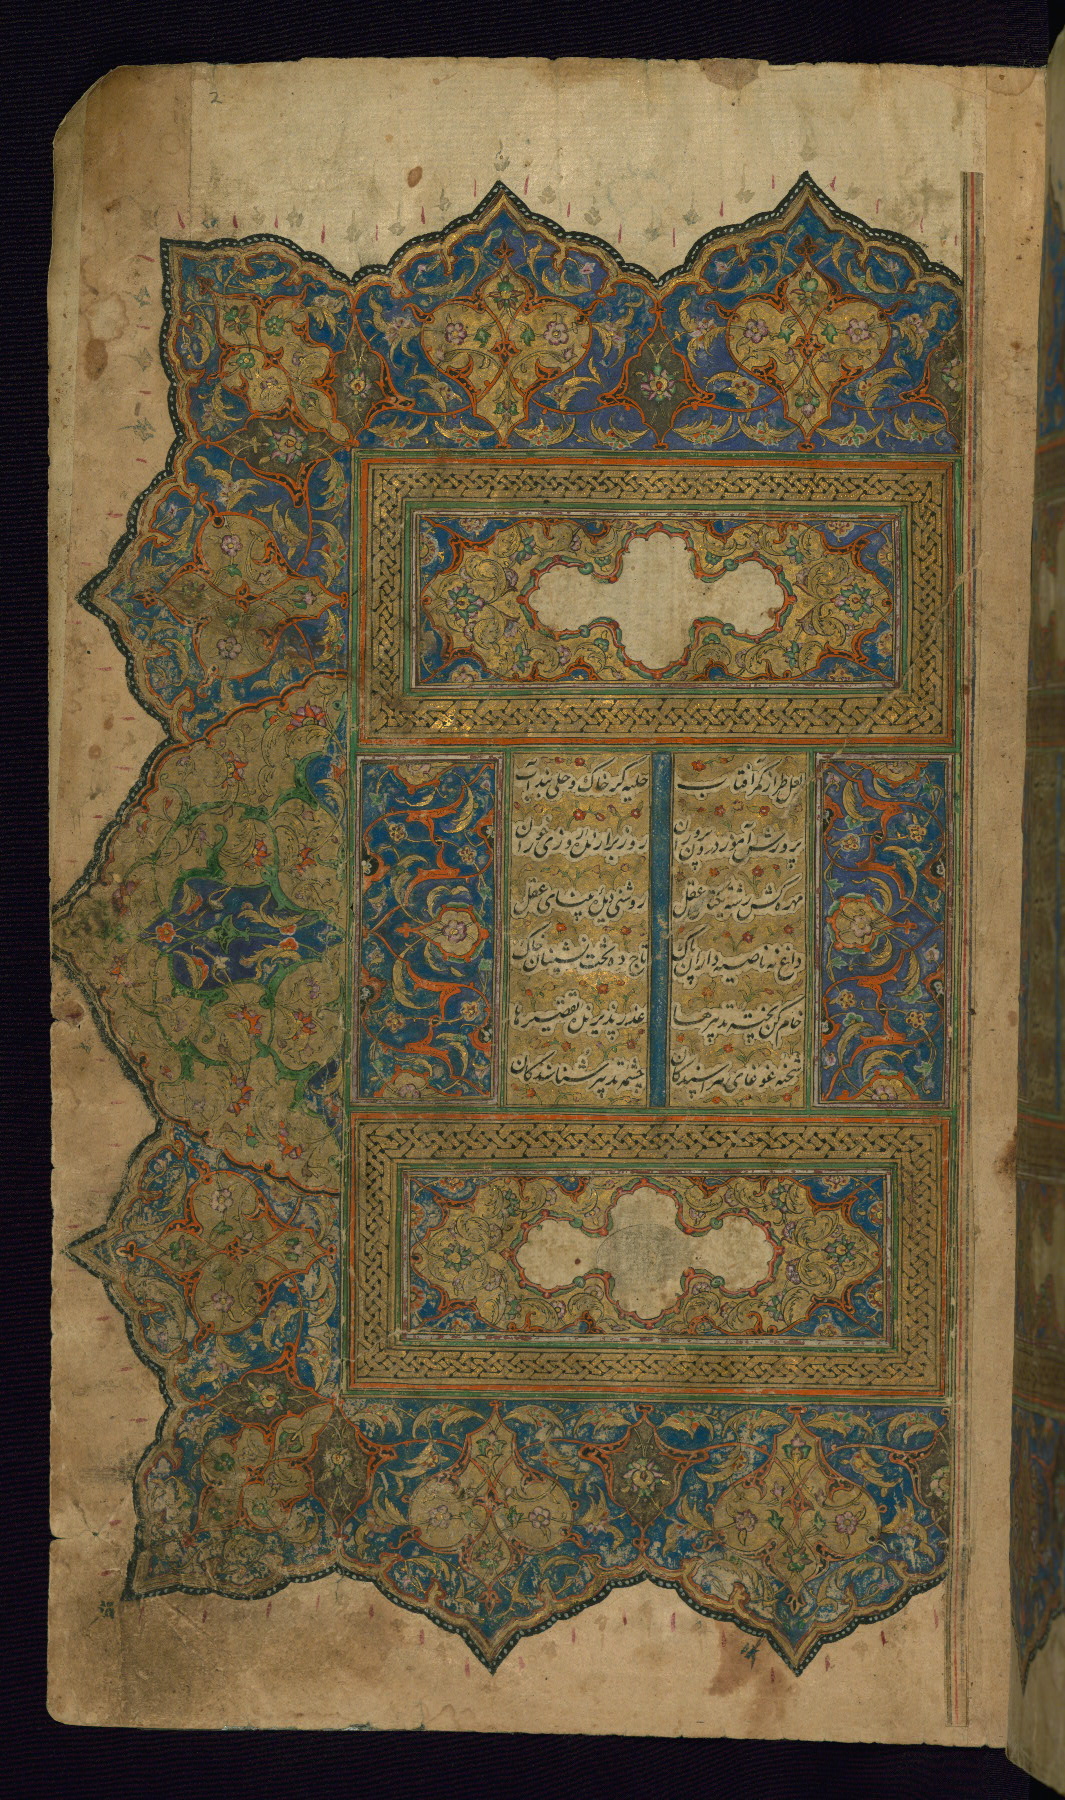 2
لعل طراز کمر آفتاب حلیه گر خاک و حلی بند آب
پرورش آموز درون پروران روز برآرنده روزی خوران
مهره کش رشته یکتای عقل روشنی دیده بینای عقل
داغ نه ناصیه داران پاک تاج ده تخت نشینان خاک
خام کن پخته تدبیرها عذر پذیرنده تقصیرها
شحنه غوغای هراسندگان چشمه تدبیر شناسندگان